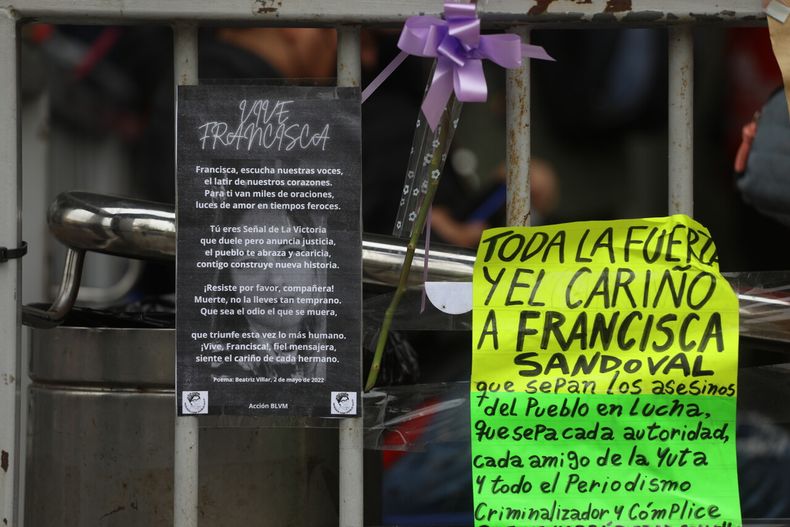 VIVE
FRANCISCA
Francisca, escucha nuestras voces,
el latir de nuestros corazones.
Para ti van miles de oraciones,
luces de amor en tiempos feroces.
Tú eres Señal de La Victoria
que duele pero anuncia justicia,
el pueblo te abraza y acaricia,
contigo construye nueva historia.
¡Resiste por favor, compañera!
Muerte, no la lleves tan temprano.
Que sea el odio el que se muera,
que triunfe esta vez lo más humano.
¡Vive, Francisca!, fiel mensajera,
siente el cariño de cada hermano.
Poema: Beatriz Villar, 2 de mayo de 2022
Acción BLVM
TODA LA FUERZA
Y EL CARIÑO
A FRANCISCA
SANDOVAL
que sepan los asesinos
del Pueblo en Lucha,
que sepa cada autoridad,
cada amigo de la Yuta
y todo el Periodismo
Criminalizador y Cómplice